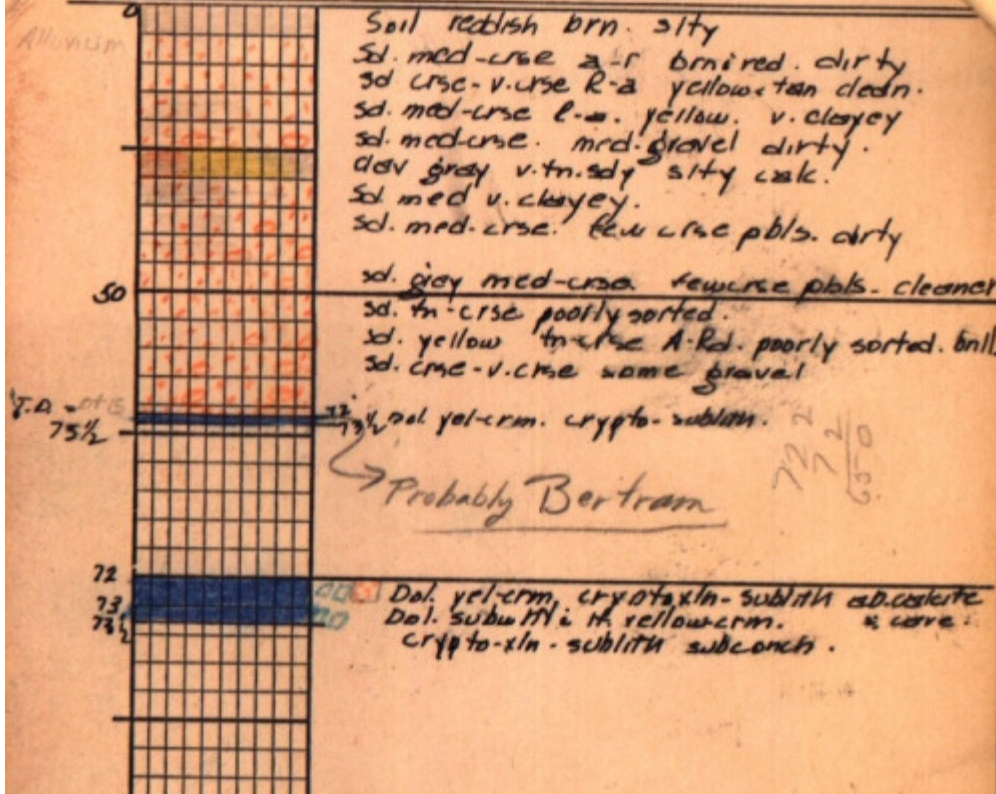 0
Alluvium
Soil reddish brn. slty
Sd. med-crse a-r brn; red. dirty
sd crse-v.crse R-a yellow-tan clean.
sd. med-crse yellow. v. clayey
sd. med-crse. med. gravel dirty.
clay gray v.fn. sdy slty calc.
Sd. med v. clayey.
sd. med-crse. few crse pbls. dirty
sd. gray med-crse few crse pbls. cleaner
50
sd. fn-crse poorly sorted.
sd. yellow fn-crse A-Rd. poorly sorted.
Sd. crse-v.crse some gravel
T.D.
73½
72
73½ Dol. yel-crm. crypto-sublith.
Probably Bertram
722
72
650
72
Dol. yel-crm, cryptoxln-sublith
73
Dol. sublith yellow crm.
73½
crypto-xln-sublith subconch.